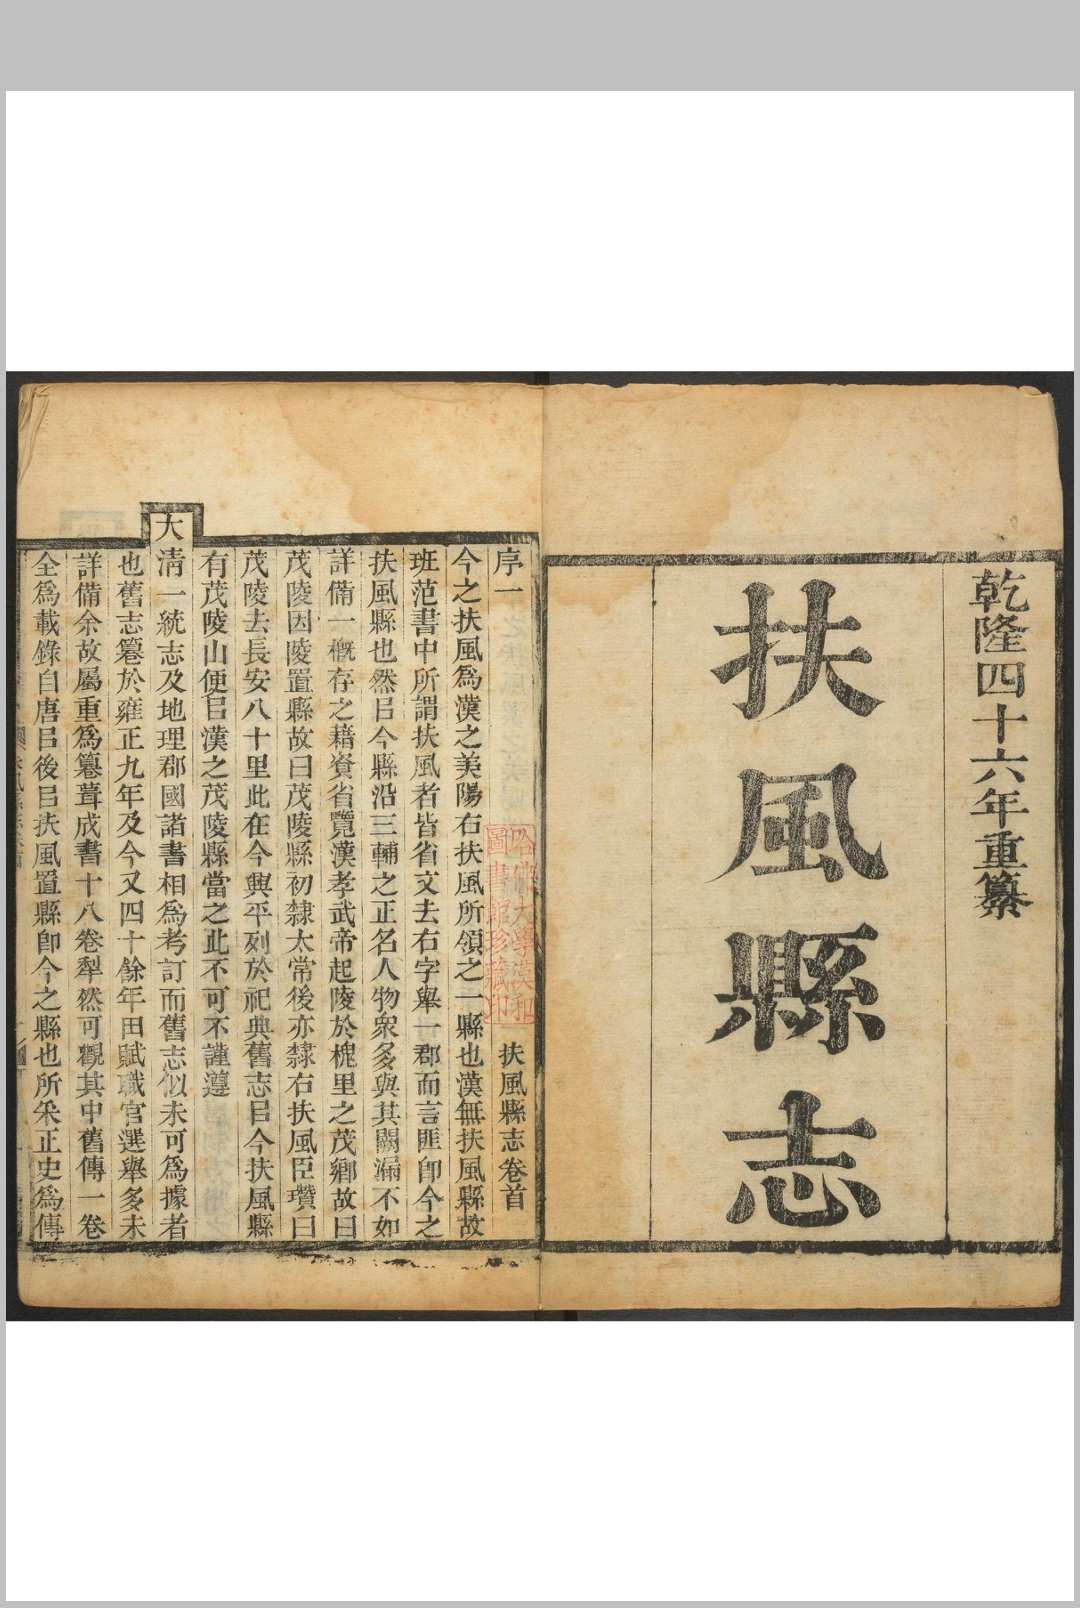 乾隆四十六年重纂
扶風縣志
序一
扶風縣志卷首
哈佛大學漢和圖書館珍藏印
今之扶風為漢之美陽右扶風所領之一縣也漢無扶風縣故
班范書中所謂扶風者皆省文去右字舉一郡而言匪卽今之
扶風縣也然㠯今縣沿三輔之正名人物衆多與其闕漏不如
詳備一概存之藉資省覽漢孝武帝起陵於槐里之茂鄉故曰
茂陵因陵置縣故曰茂陵縣初隸太常後亦隸右扶風臣瓚曰
茂陵去長安八十里此在今興平列於祀典舊志㠯今扶風縣
有茂陵山便㠯漢之茂陵縣當之此不可不謹遵
大清一統志及地理郡國諸書相為考訂而舊志似未可為據者
也舊志纂於雍正九年及今又四十餘年田賦職官選舉多未
詳備余故屬重為纂葺成書十八卷犁然可觀其中舊傳一卷
全為載錄自唐㠯後㠯扶風置縣卽今之縣也所采正史為傳